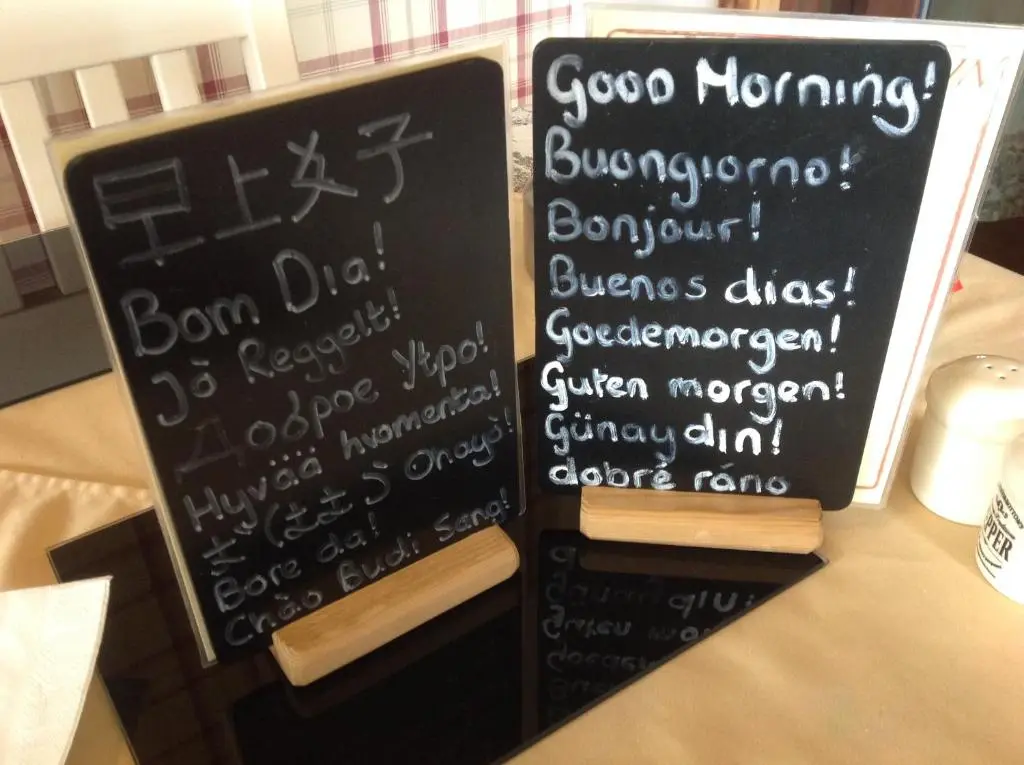 早上好
Bom Dia!
Jó Reggelt!
Доброе Утро!
Hyvää huomenta!
Ohayo!
Bore da!
Chào Budi Sang!
Good Morning!
Buongiorno!
Bonjour!
Buenos dias!
Goedemorgen!
Guten morgen!
Günaydin!
dobré ráno